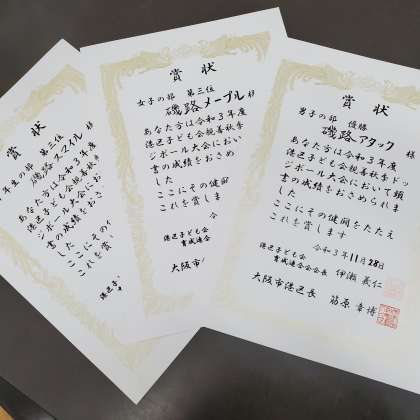 賞状
年生の部 第三位
磯路スマイル 様
あなた方は令和3年度
港区子ども会親善秋季
ジボール大会におい
書の成績をおさめ
した
ここにその
これを賞し
港区子
賞状
女子の部 第三位
磯路メープル 様
あなた方は令和3年度
港区子ども会親善秋季
ジボール大会におい
書の成績をおさめ
した
ここにその健闘
これを賞します
港区子ども会
育成連合会
大阪市
賞状
男子の部 優勝
磯路アタック 様
あなた方は令和3年度
港区子ども会親善秋季ドッ
ジボール大会において頭
書の成績をおさめられま
した
ここにその健闘をたたえ
これを賞します
令和3年11月28日
港区子ども会
育成連合会会長 伊瀬 義仁
大阪市港区長 筋原 章博